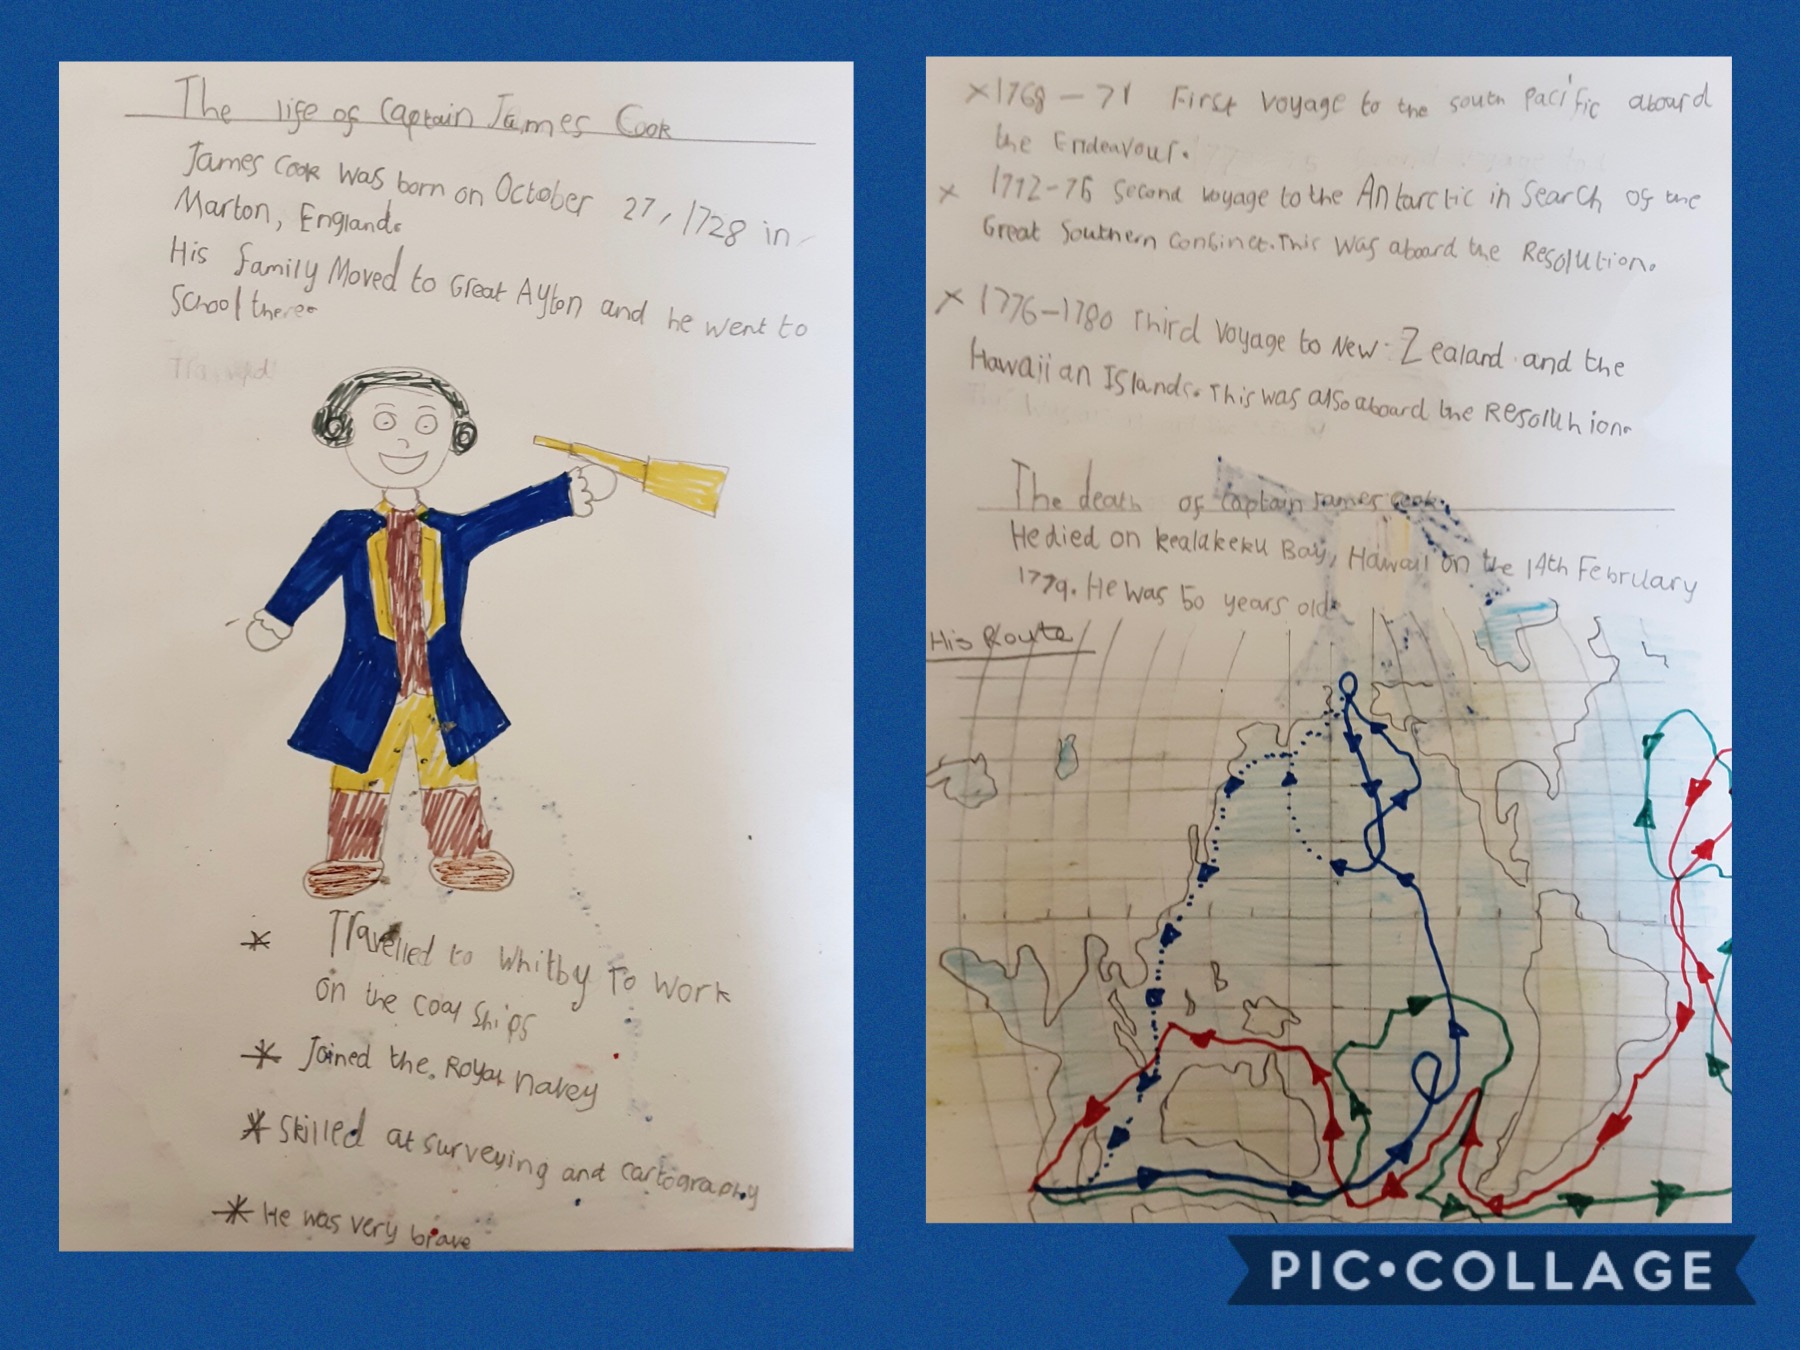 The life of Captain James Cook
James Cook was born on October 27, 1728 in
Marton, England.
His family Moved to Great Ayton and he went to
School there.
* Travelled to Whitby To Work
on the coal ships
* Joined the Royal navey
* Skilled at surveying and cartography
* He was very brave
x 1768 - 71 First Voyage to the south Pacific aboard
the Endeavour.
x 1772-75 Second voyage to the Antarctic in Search of the
Great Southern Continet. This was aboard the Resolution.
x 1776-1780 Third Voyage to New Zealand and the
Hawaiian Islands. This was also aboard the Resolution.
The death of Captain James Cook
He died on kealakeku Bay, Hawaii on the 14th February
1779. He was 50 years old.
His Route
PIC•COLLAGE